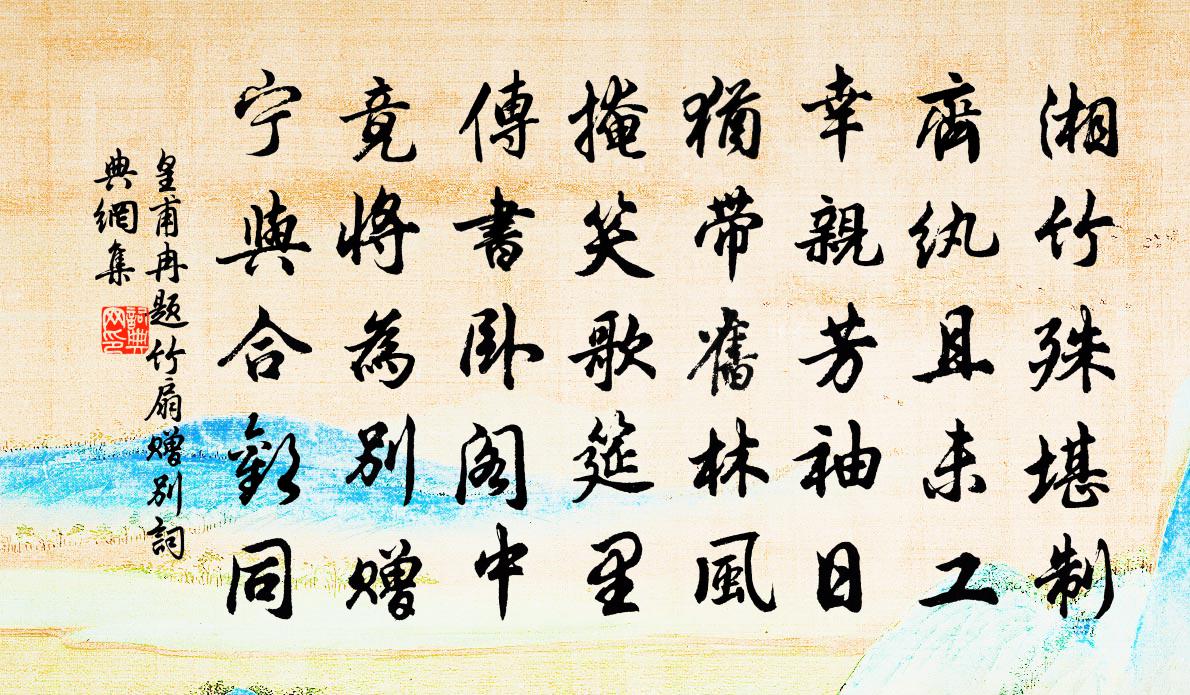 湘竹殊堪制
齊纨且未工
幸親芳袖日
猶带舊林風
掩笑歌筵里
傳書卧阁中
竟將為别贈
宁與合歡同
皇甫冉题竹扇贈别詞
典網集
詞典
网印